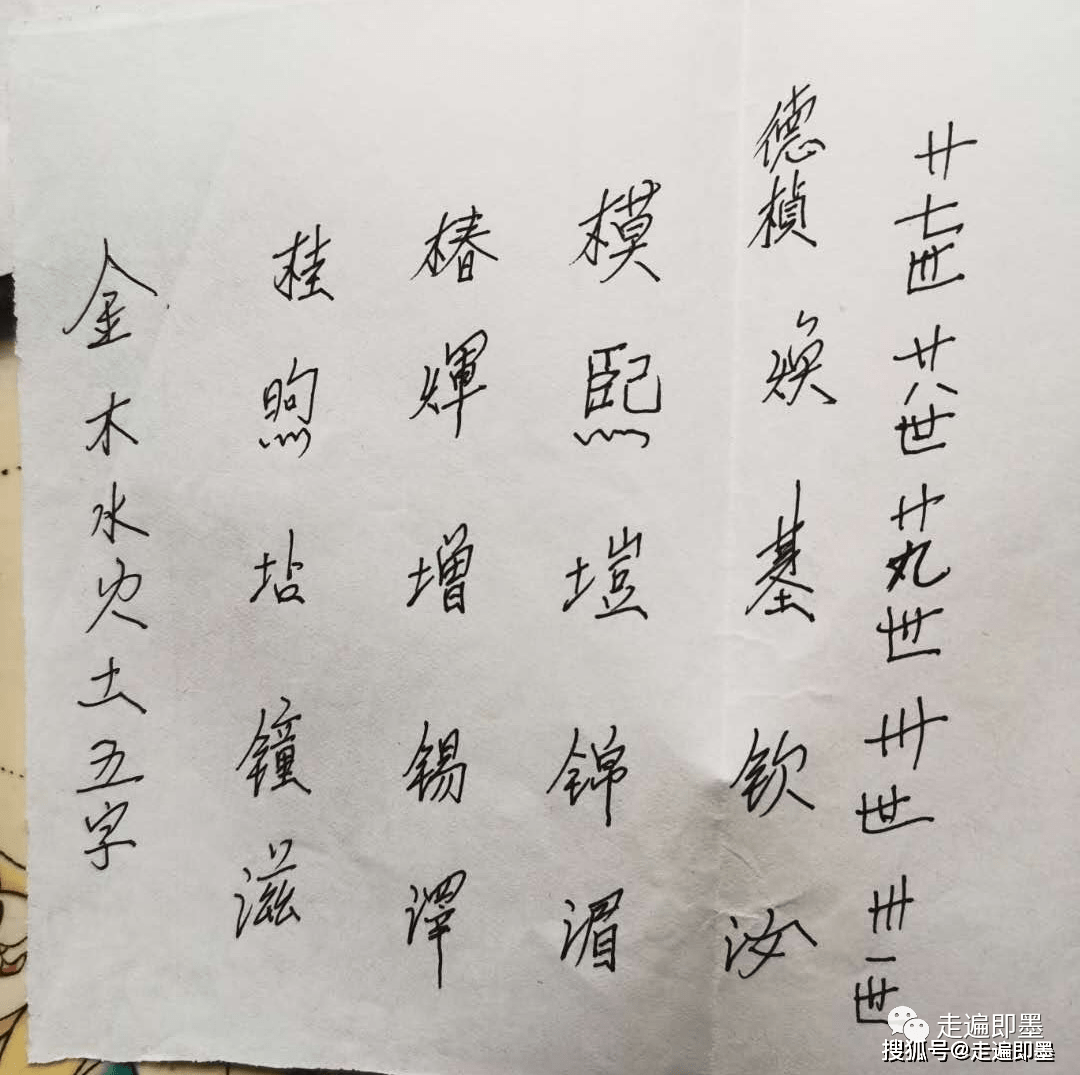 廿七世 廿八世 廿九世 卅世 卅一世
德楨 焕 基 钦 汝
模 熙 塏 锦 湄
椿 煇 增 锡 澤
桂 煦 坫 鐘 滋
金木水火土五字
走遍即墨
搜狐号@走遍即墨